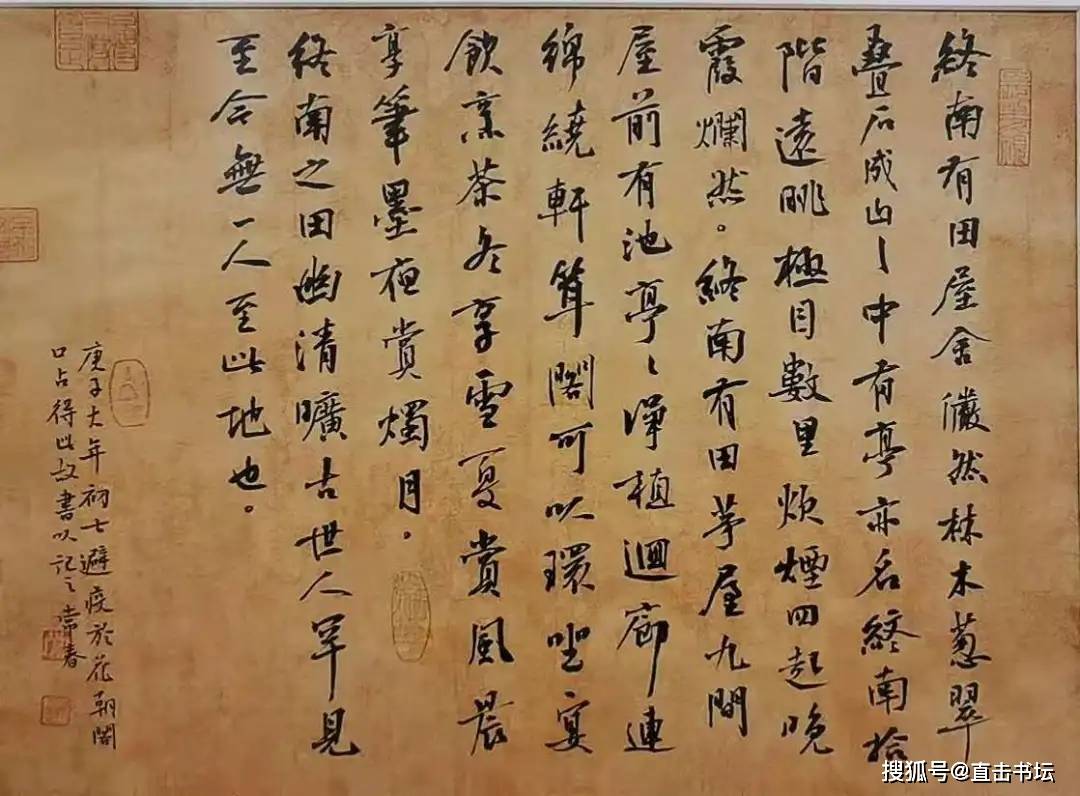 終南有田屋舍儼然林木葱翠
疊石成山々中有亭亦名終南拾
階遠眺極目數里炊煙四起晚
霞爛然。終南有田茅屋九間
屋前有池亭々淨植迴廊連
綿繞軒閣可以環坐宴
飲烹茶冬享雪夏賞風晨
享筆墨夜賞燭月。
終南之田幽清曠古世人罕見
至今無一人至此地也。
庚子大年初七避疫於花朝閣
口占得此故書以記之常春
搜狐号@直击书坛